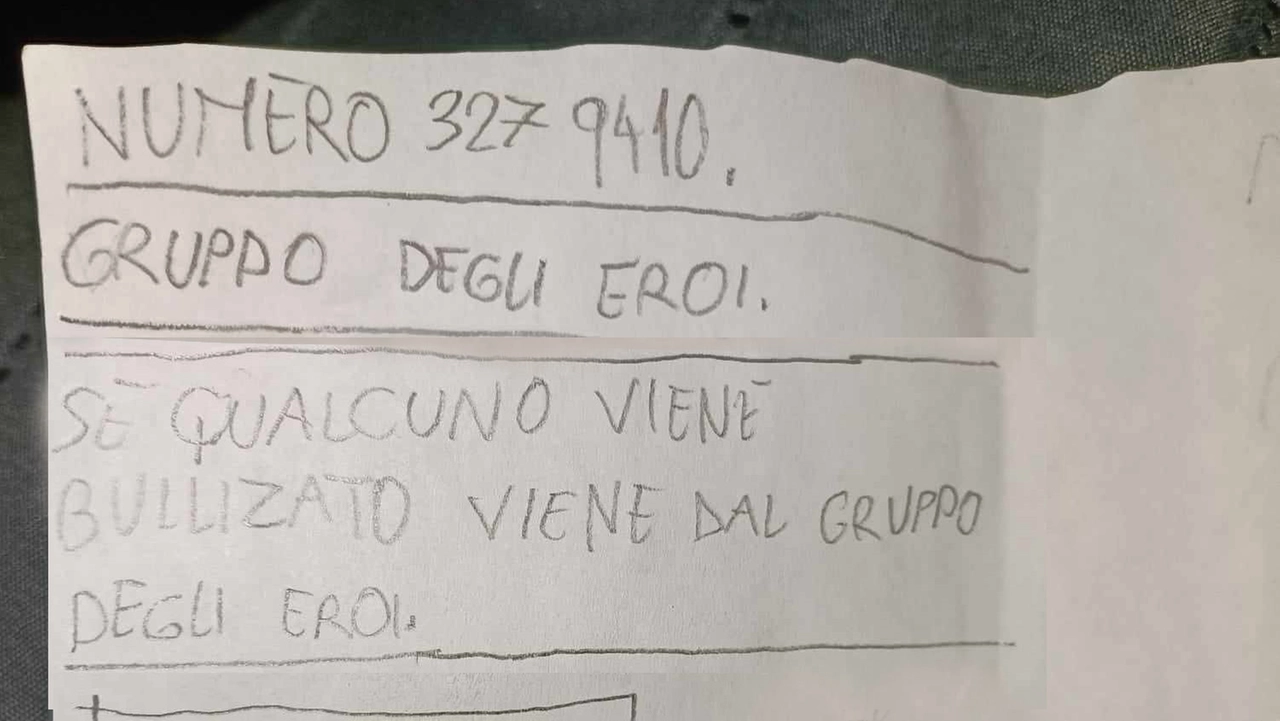 NUMERO 327 9410.
GRUPPO DEGLI EROI.
SE QUALCUNO VIENE
BULLIZATO VIENE DAL GRUPPO
DEGLI EROI.